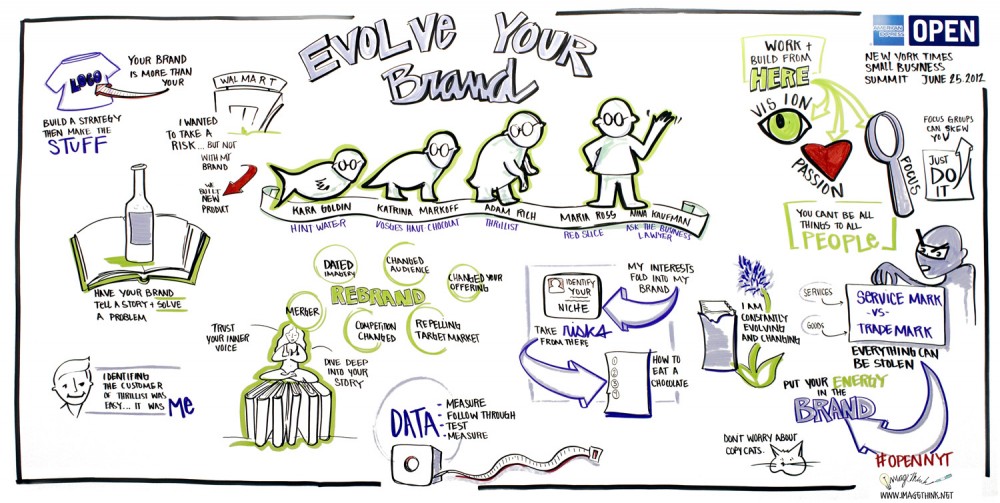 EVOLVE YOUR
Brand
AMERICAN
EXPRESS
OPEN
NEW YORK TIMES
SMALL BUSINESS
SUMMIT JUNE 25.2012
LOGO
YOUR BRAND
IS MORE THAN
YOUR
BUILD A STRATEGY
THEN MAKE THE
STUFF
WALMART
I WANTED
TO TAKE A
RISK... BUT NOT
WITH MY
BRAND
WE
BUILT
NEW
PRODUCT
KARA GOLDIN
HINT WATER
KATRINA MARKOFF
VOSGES HAUT-CHOCOLAT
ADAM RICH
THRILLIST
MARIA ROSS
RED SLICE
NINA KAUFMAN
ASK THE BUSINESS
LAWYER
WORK +
BUILD FROM
HERE
VISION
PASSION
FOCUS
FOCUS GROUPS
CAN SKEW
YOU
JUST
DO
IT
YOU CAN'T BE ALL
THINGS TO ALL
PEOPLE
HAVE YOUR BRAND
TELL A STORY + SOLVE
A PROBLEM
DATED
IMAGERY
CHANGED
AUDIENCE
CHANGED YOUR
OFFERING
REBRAND
MERGER
COMPETITION
CHANGED
REPELLING
TARGET MARKET
TRUST
YOUR INNER
VOICE
DIVE DEEP
INTO YOUR
STORY
IDENTIFY
YOUR
NICHE
MY INTERESTS
FOLD INTO MY
BRAND
TAKE RISKS
FROM THERE
1
2
3
4
5
HOW TO
EAT A
CHOCOLATE
I AM
CONSTANTLY
EVOLVING
AND CHANGING
SERVICES
GOODS
SERVICE MARK
-VS-
TRADE MARK
EVERYTHING CAN
BE STOLEN
PUT YOUR ENERGY
IN THE
BRAND
IDENTIFING
THE CUSTOMER
OF THRILLIST WAS
EASY... IT WAS ME
DATA
- MEASURE
- FOLLOW THROUGH
- TEST
- MEASURE
DON'T WORRY ABOUT
COPY CATS.
#OPENNYT
ImageThink
WWW.IMAGETHINK.NET